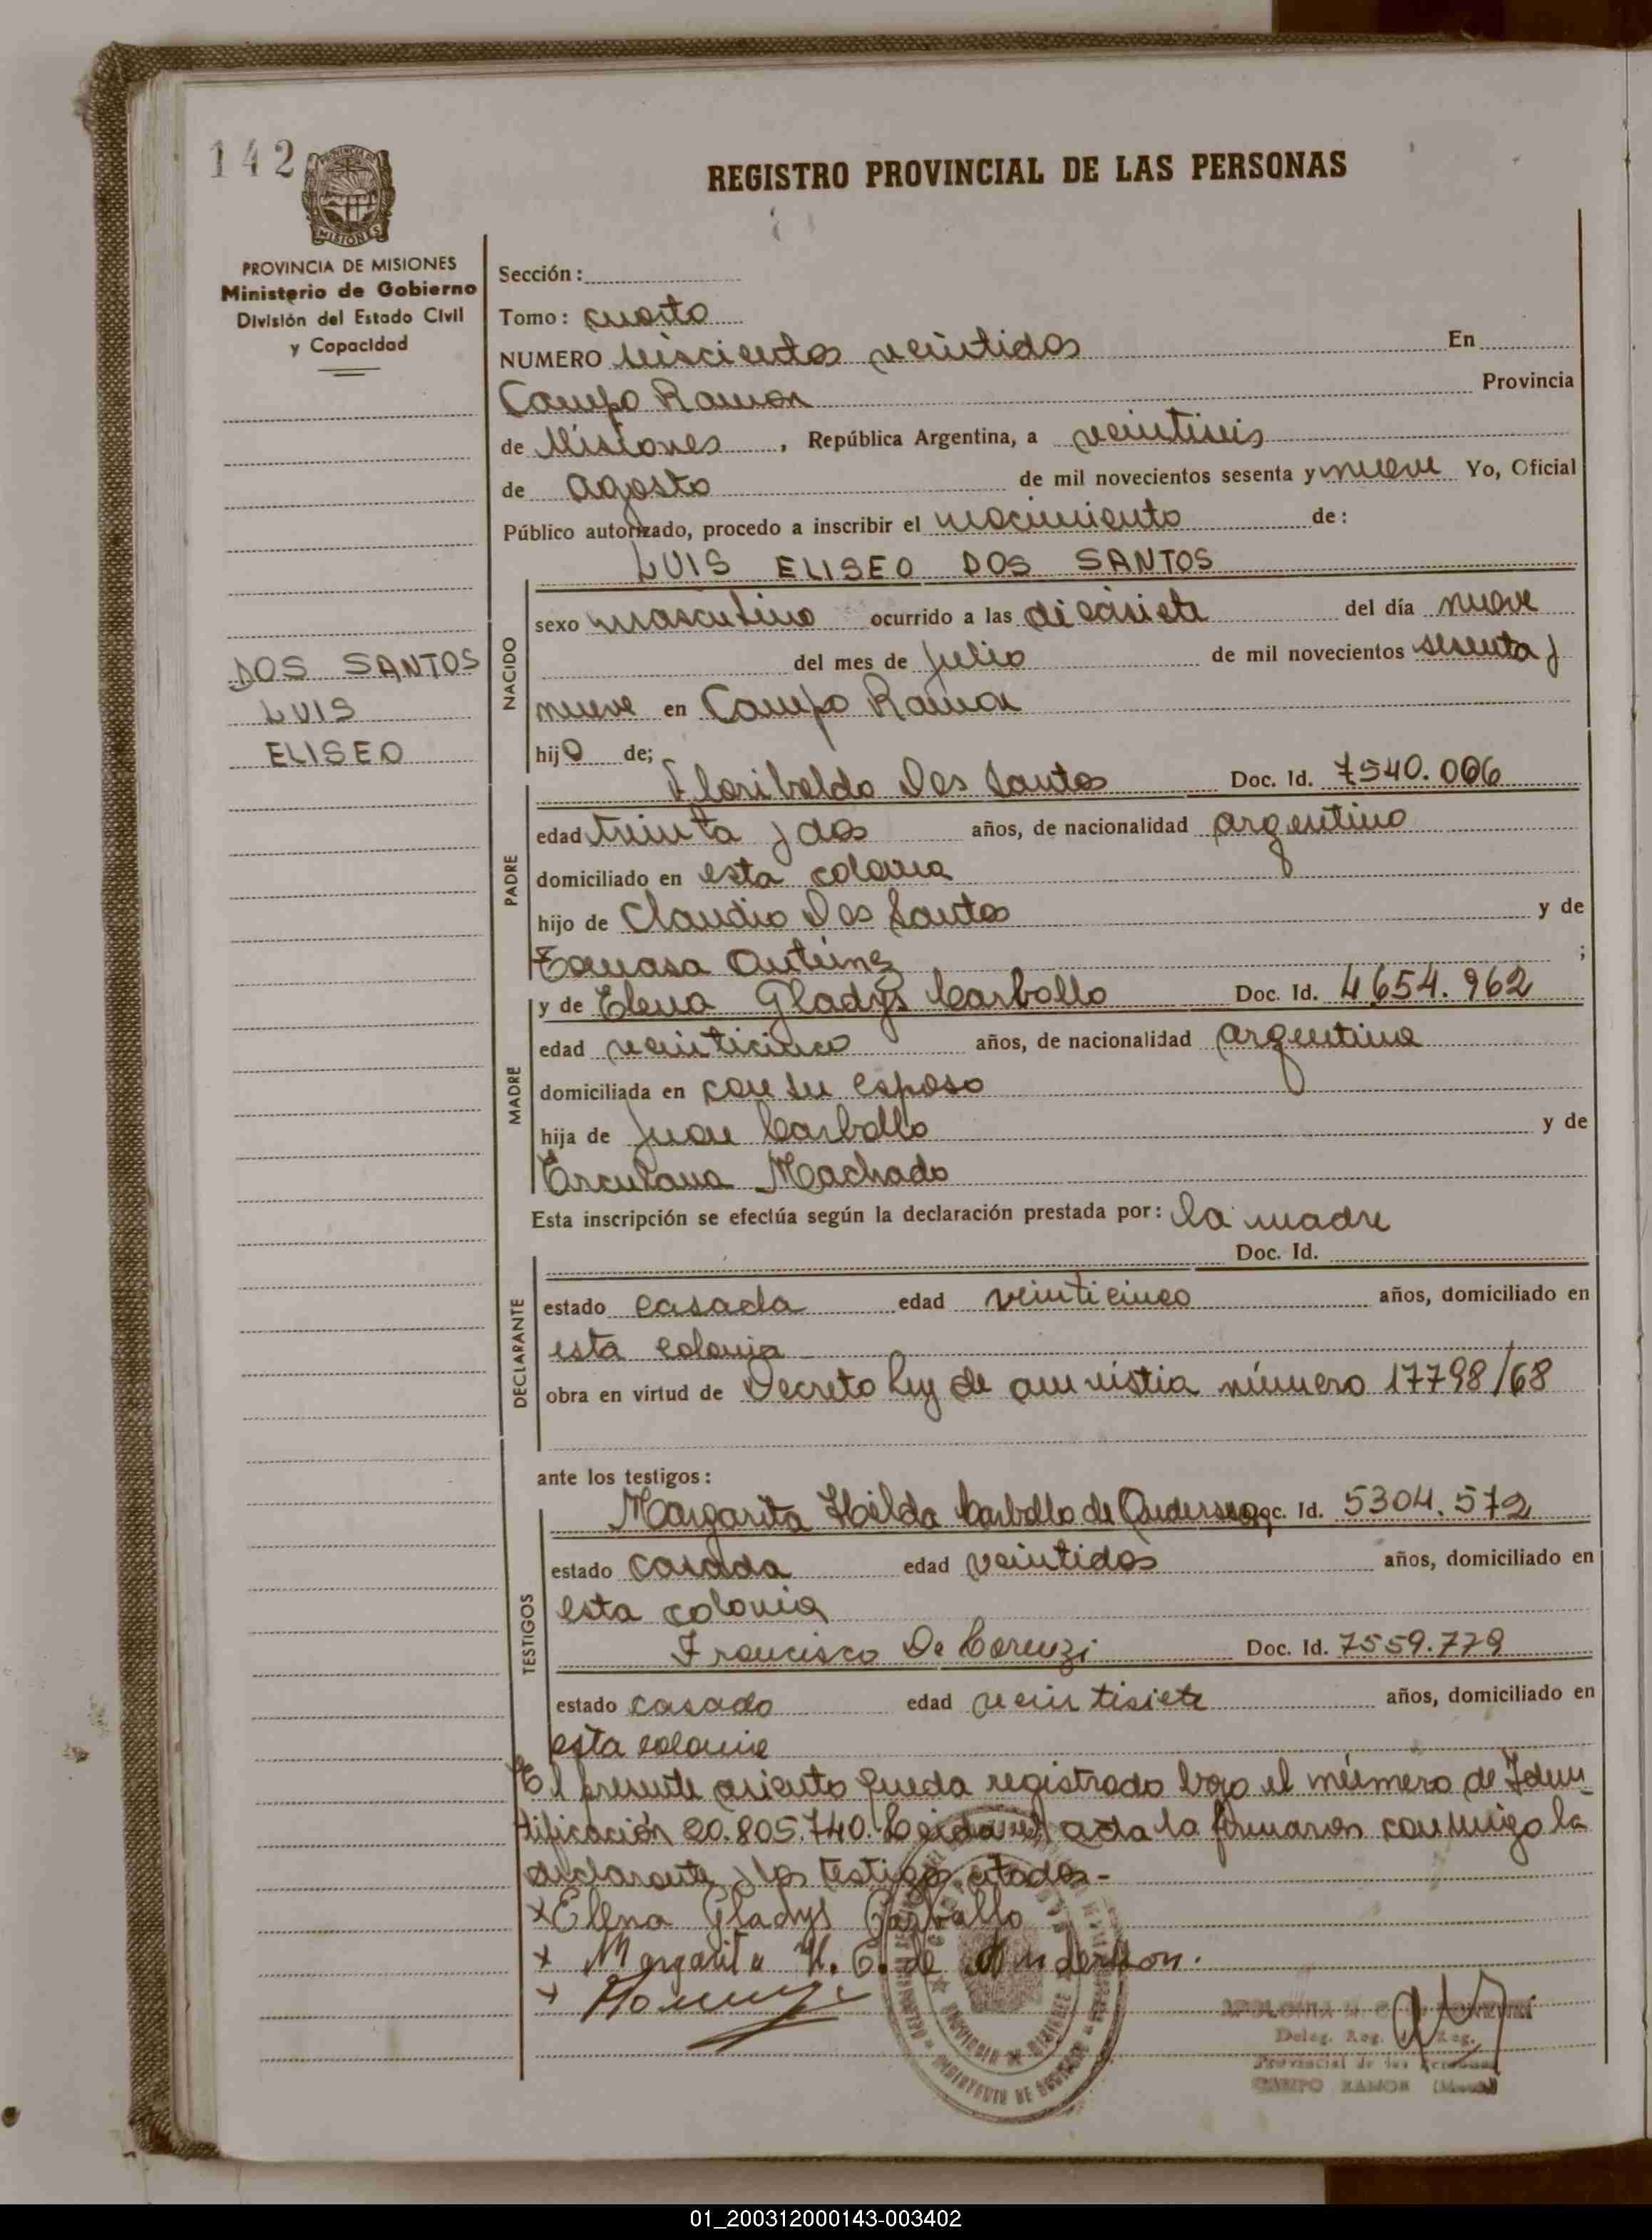 142
REGISTRO PROVINCIAL DE LAS PERSONAS
PROVINCIA DE MISIONES
Ministerio de Gobierno
División del Estado Civil
y Capacidad
DOS SANTOS
LUIS
ELISEO
Sección:
Tomo: cuarto
NUMERO seiscientos veintidos En
Campo Ramon Provincia
de Misiones, República Argentina, a veintiseis
de agosto de mil novecientos sesenta y nueve Yo, Oficial
Público autorizado, procedo a inscribir el nacimiento de:
LUIS ELISEO DOS SANTOS
NACIDO
sexo masculino ocurrido a las diecisiete del día nueve
del mes de Julio de mil novecientos sesenta y
nueve en Campo Ramon
hijo de;
PADRE
Floribaldo Dos Santos Doc. Id. 7540.006
edad treinta y dos años, de nacionalidad argentino
domiciliado en esta colonia
hijo de Claudio Dos Santos y de
Tomasa ;
MADRE
y de Elena Gladys Carballo Doc. Id. 4654.962
edad veinticinco años, de nacionalidad argentina
domiciliada en con su esposo
hija de Juan Carballo y de
Erculana Machado
Esta inscripción se efectúa según la declaración prestada por: la madre
Doc. Id.
DECLARANTE
estado casada edad veinticinco años, domiciliado en
esta colonia
obra en virtud de Decreto Ley de amnistia número 17798/68
ante los testigos:
TESTIGOS
Margarita Hilda Carballo de Anderson Doc. Id. 5304.572
estado casada edad veintidos años, domiciliado en
esta colonia
Francisco De Lorenzi Doc. Id. 7559.779
estado casado edad veintisiete años, domiciliado en
esta colonia
El presente asiento queda registrado bajo el número de Iden-
tificación 20.805.740. Leida el acta la firmaron conmigo la
declarante y los testigos citados-
x Elena Gladys Carballo
x Margarita H. C. de Anderson.
x
Deleg. Reg.
Provincial de las Personas
CAMPO RAMON
PROVINCIA DE MISIONES
01_200312000143-003402